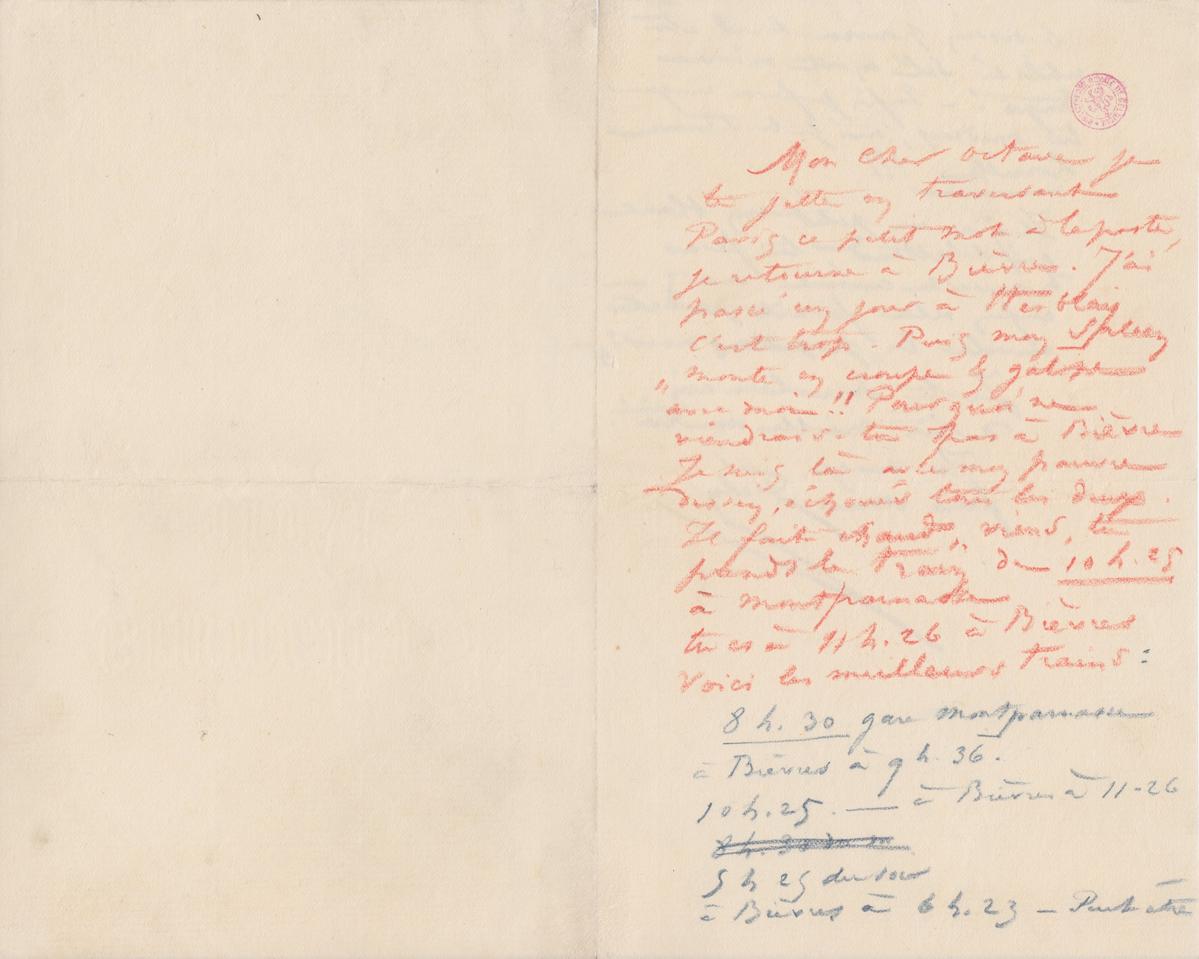 BIBLIOTHEQUE ROYALE DE BELGIQUE
Mon cher octave je
te jette en traversant
Paris ce petit mot à la poste,
je retourne à Bièvres. J'ai
passé un jour à Herblay
c'est trop. Puis mon Spleen
„ monte en croupe & galope
avec moi"!! Pourquoi ne
viendrais-tu pas à Bièvres
Je suis là avec mon pauvre
échoués tous les deux.
Il fait chaud, viens, tu
prends le train de 10 h. 25
à montparnasse
tu es à 11 h. 26 à Bièvres
Voici les meilleurs trains :
8 h. 30 gare montparnasse
à Bièvres à 9 h. 36.
10 h. 25. — à Bièvres à 11-26
8 h. 30
5 h 25 du soir
à Bièvres à 6 h. 23 – Peut être